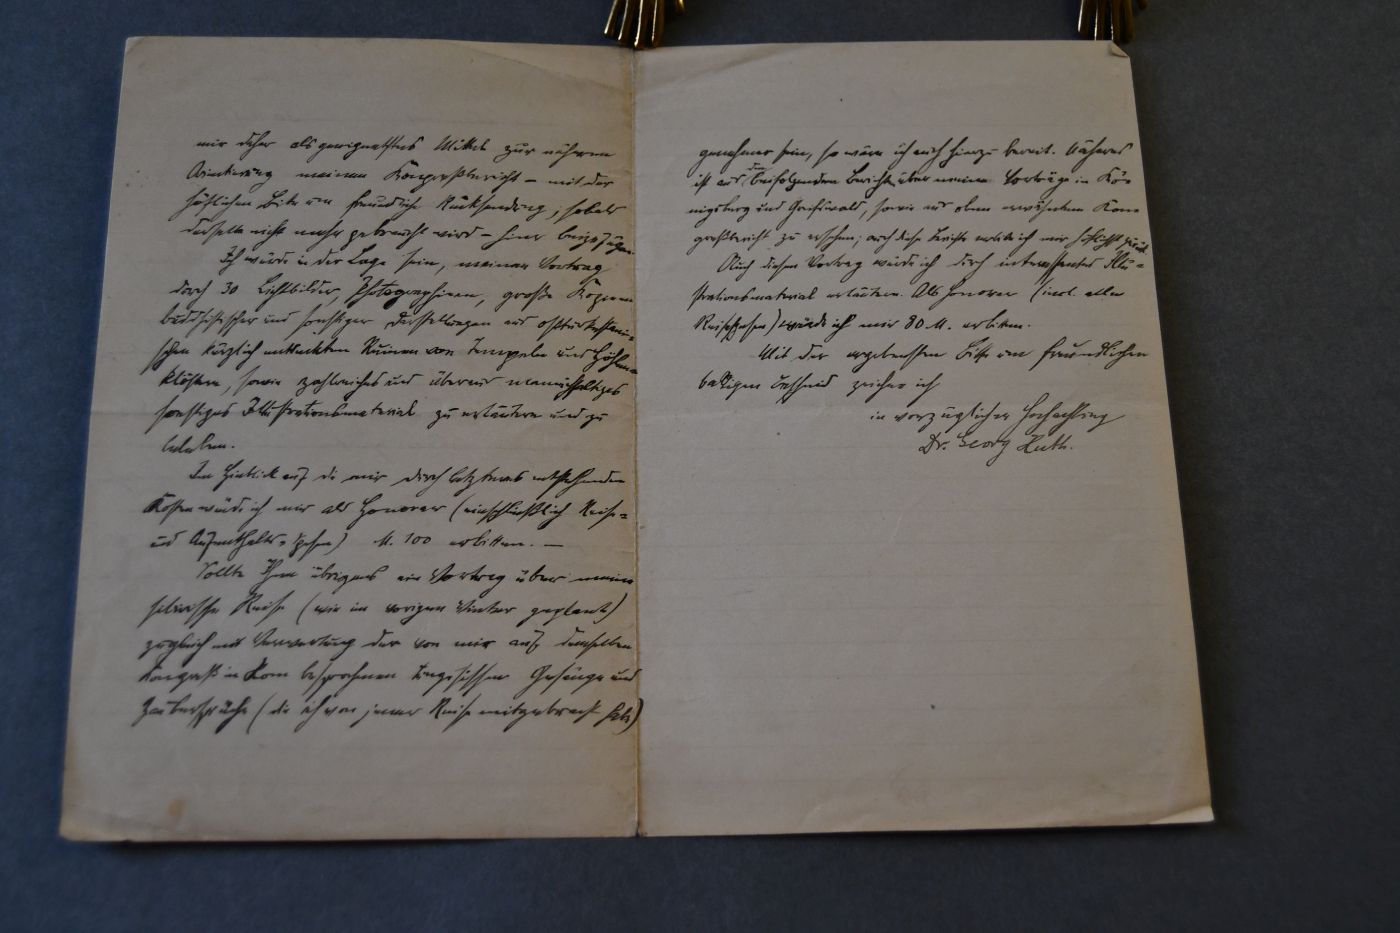 mir daher als geeignetstes Mittel zur näheren
Orientierung meinen Kongreßbericht – mit der
höflichen Bitte um freundliche Rücksendung, sobald
derselbe nicht mehr gebraucht wird – hier beizufügen.
Ich würde in der Lage sein, meinen Vortrag
durch 30 Lichtbilder, Photographieen, große Kopieen
buddhistischer und sonstiger Darstellungen aus ostturkestani-
schen kürzlich entdeckten Ruinen von Tempeln und Höhlen-
klöstern, sowie zahlreiches und überaus mannichfaltiges
sonstiges Illustrationsmaterial zu erläutern und zu
beleben.
Im Hinblick auf die mir durch letzteres entstehenden
Kosten würde ich mir als Honorar (einschließlich Reise-
und Aufenthalts-Spesen) M. 100 erbitten. —
Sollte Ihnen übrigens ein Vortrag über meine
sibirische Reise (wie im vorigen Winter geplant)
zugleich mit Verwertung der von mir auf demselben
Kongreß in Rom besprochenen tungusischen Gesänge und
Zaubersprüche (die ich von jener Reise mitgebracht habe)
genehmer sein, so wäre ich auch hierzu bereit. Näheres
ist aus den beifolgenden Berichten über meine Vorträge in Kö-
nigsberg und Greifswald, sowie aus oben erwähntem Kon-
greßbericht zu ersehen; auch diese Berichte erbitte ich mir höflichst zurück.
Auch diesen Vortrag würde ich durch interessantes Illu-
strationsmaterial erläutern. Als Honorar (incl. aller
Reisespesen) würde ich mir 80 M. erbitten.
Mit der ergebensten Bitte um freundlichen
baldigen Bescheid zeichne ich
in vorzüglicher Hochachtung
Dr. Georg Huth.